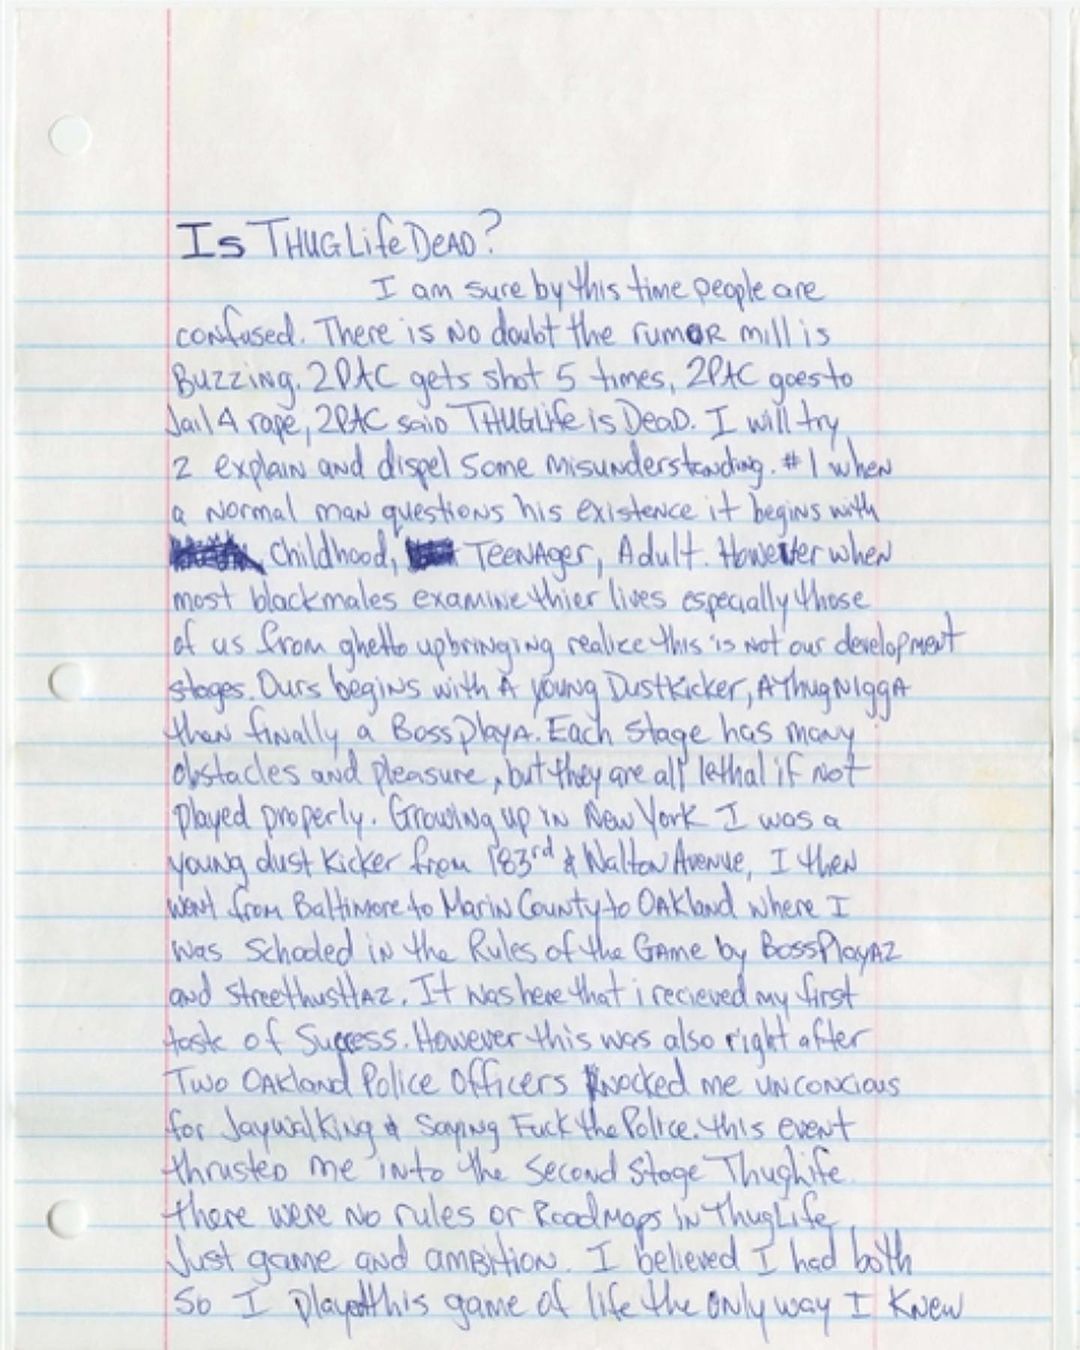 Is THUGLife DeAD?
I am sure by this time people are
confused. There is No doubt the rumOR mill is
Buzzing. 2PAC gets shot 5 times, 2PAC goes to
Jail 4 rape, 2PAC saiD THUGLife is DeaD. I will try
2 explain and dispel some misunderstanding. #1 when
a Normal man questions his existence it begins with
Childhood, TeeNAger, Adult. However when
most black males examine thier lives especially those
of us from ghetto upbringing realize this is Not our development
stages. Ours begins with A young DustKicker, A ThugNIggA
then finally a BossPlayA. Each stage has many
obstacles and pleasure, but they are all lethal if Not
played properly. Growing up in New York I was a
young dust Kicker from 183rd & Walton Avenue, I then
went from Baltimore to Marin County to OAKland where I
was schooled in the Rules of the GAme by BossPlayAZ
and streethustlAZ. It was here that i recieved my first
taste of Success. However this was also right after
Two OAKland Police Officers Knocked me UNCONCIOUS
for Jaywalking & Saying Fuck the Police. this event
thrusteD me into the Second Stage ThugLife.
there were No rules or RoadMaps in ThugLife,
Just game and amBition. I believed I had both
So I played this game of life the only way I Knew